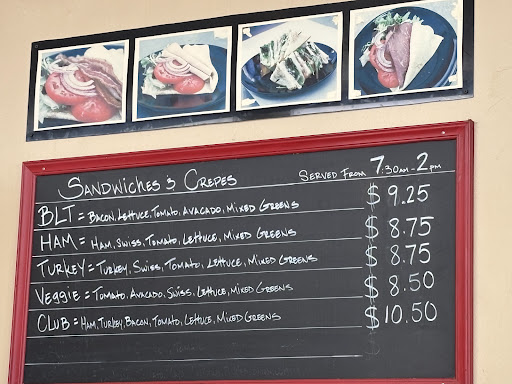 Sandwiches & Crepes Served From 7:30am - 2pm
BLT = Bacon, Lettuce, Tomato, Avacado, Mixed Greens $9.25
Ham = Ham, Swiss, Tomato, Lettuce, Mixed Greens $8.75
Turkey = Turkey, Swiss, Tomato, Lettuce, Mixed Greens $8.75
Veggie = Tomato, Avacado, Swiss, Lettuce, Mixed Greens $8.50
Club = Ham, Turkey, Bacon, Tomato, Lettuce, Mixed Greens $10.50